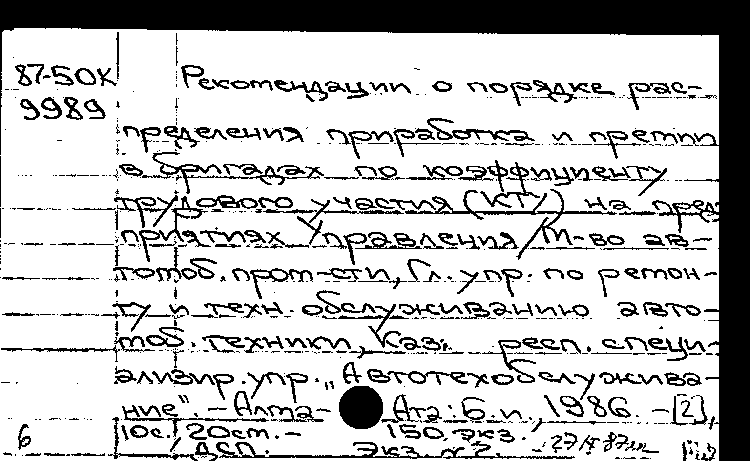 87-50К Рекомендации о порядке рас-
9989
пределения приработка и премии
в бригадах по коэффициенту
трудового участия (КТУ) на пред-
приятиях Управления / М-во ав-
тотоб. пром-сти, Гл. упр. по ремон-
ту и техн. обслуживанию авто-
моб. техники, Каз. респ. специ-
ализир. упр. „Автотехобслужива-
ние". - Алма-Ата: Б.и., 1986. - [2],
6 10с., 20см. - 150 экз.
ДСП. Экз. №2.